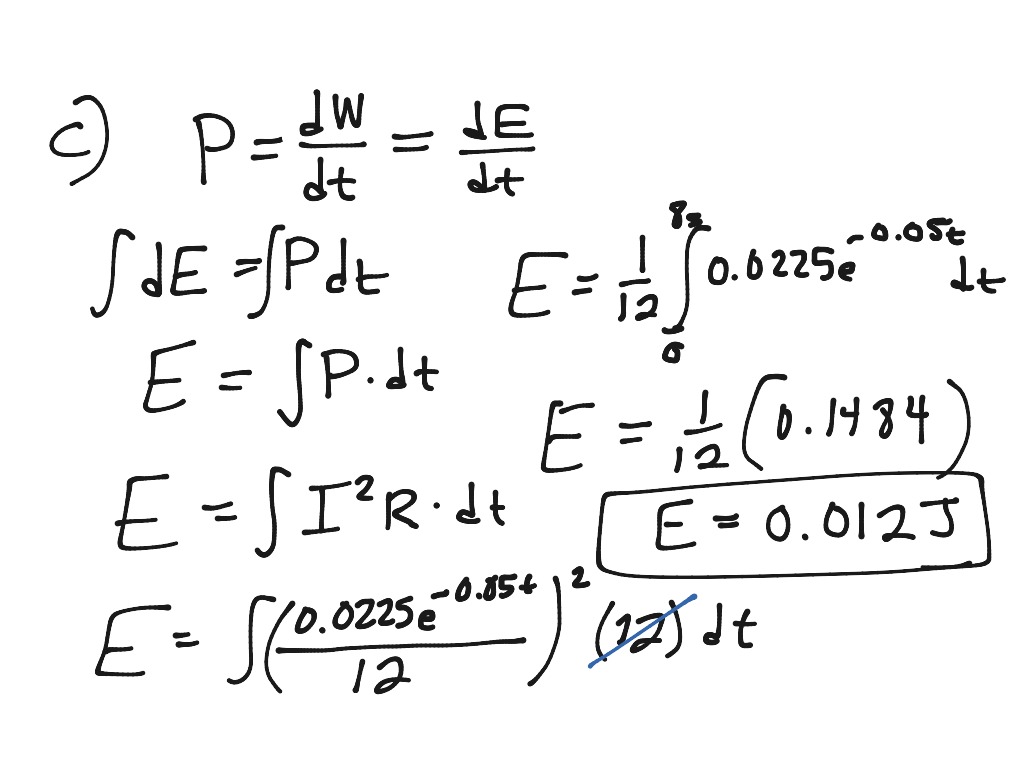 c) P = dW/dt = dE/dt
∫dE = ∫Pdt
E = ∫P·dt
E = ∫I²R·dt
E = ∫(0.0225e^-0.05t/12)² (12) dt
E = 1/12 ∫₀^8s 0.0225e^-0.05t dt
E = 1/12 (0.1484)
E = 0.012J